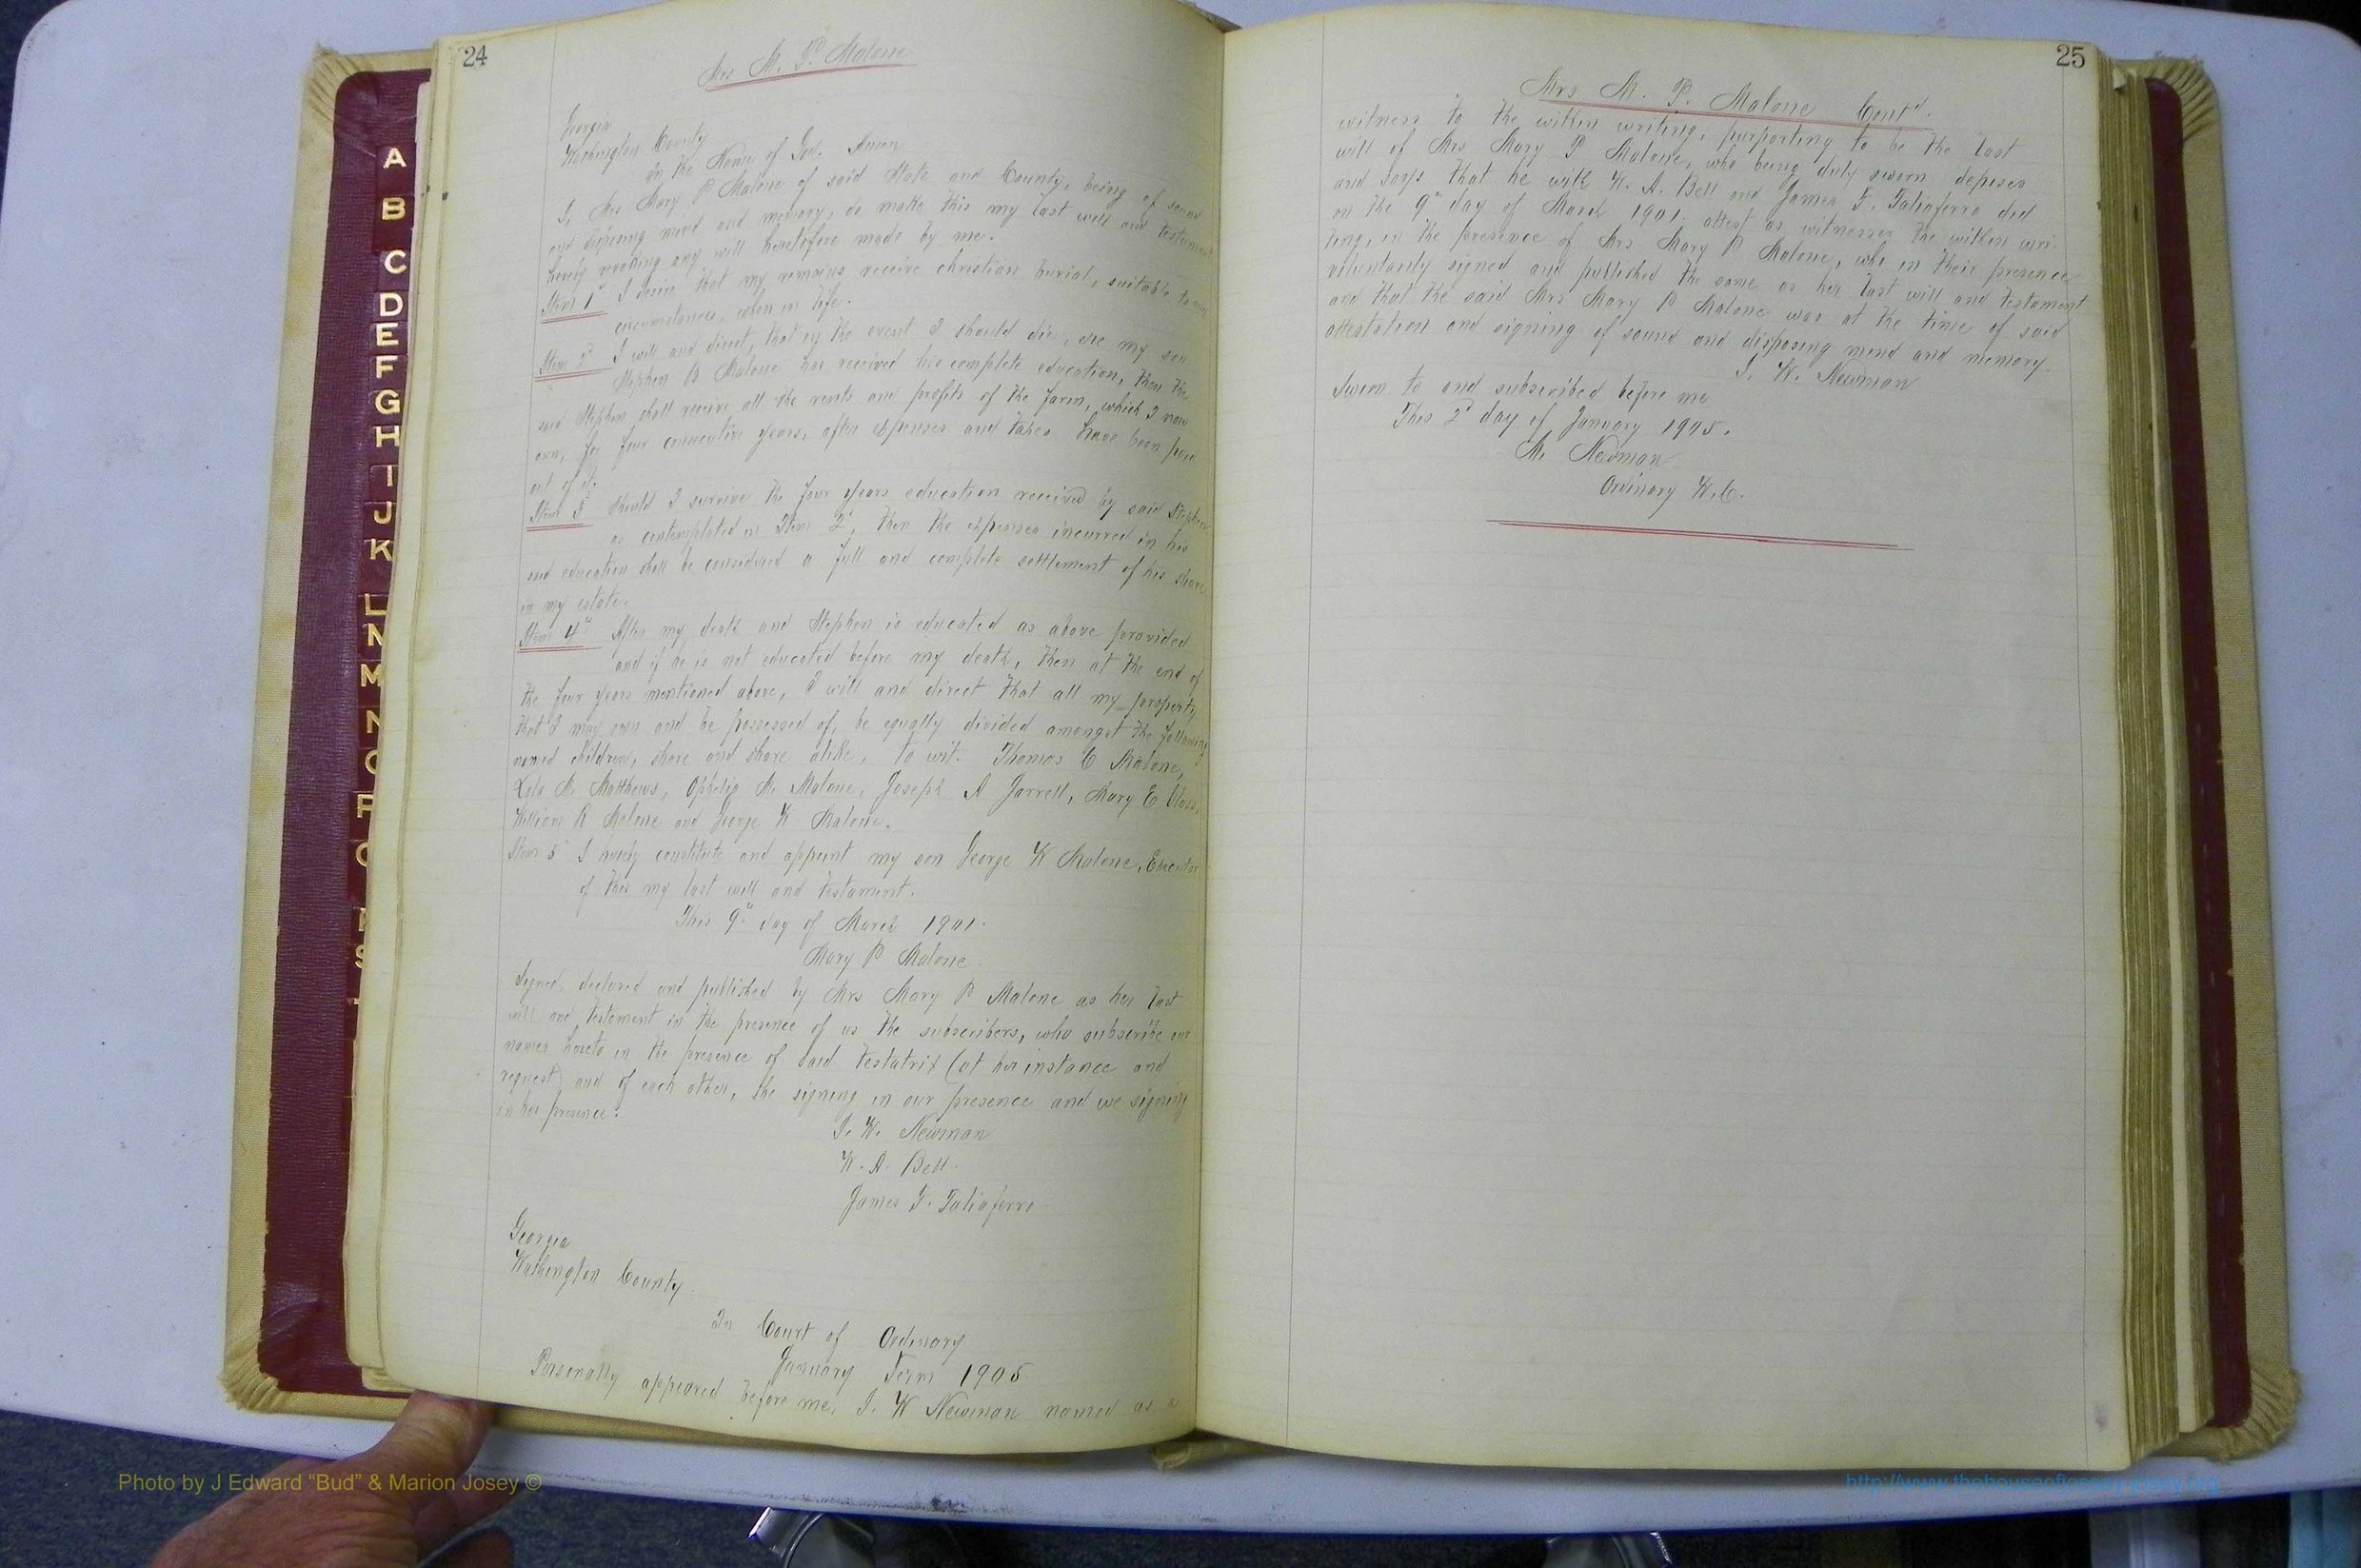 24
Mrs M. P. Malone
Georgia
Washington County
In the Name of God. Amen
I, Mrs Mary P Malone of said State and County, being of sound
and disposing mind and memory, do make this my last will and testament
hereby revoking any will heretofore made by me.
Item 1st I desire that my remains receive christian burial, suitable to my
circumstances, when in life.
Item 2d I will and direct, that in the event I should die, ere my son
Stephen B Malone has received his complete education, then the
said Stephen shall receive all the rents and profits of the farm, which I now
own, for four consecutive years, after expenses and taxes have been paid
out of it.
Item 3d Should I survive the four years education received by said Stephen
as contemplated in Item 2d, then the expenses incurred in his
said education shall be considered a full and complete settlement of his share
in my estate.
Item 4th After my death and Stephen is educated as above provided
and if he is not educated before my death, then at the end of
the four years mentioned above, I will and direct that all my property
that I may own and be possessed of, be equally divided amongst the following
named children, share and share alike, to wit. Thomas C Malone,
Lela M. Matthews, Ophelia M. Malone, Joseph A Jarrell, Mary E
William R Malone and George W Malone.
Item 5th I hereby constitute and appoint my son George W Malone, Executor
of this my last will and testament.
This 9th day of March 1901.
Mary P Malone.
Signed, declared and published by Mrs Mary P Malone as her last
will and testament in the presence of us the subscribers, who subscribe our
names hereto in the presence of said testatrix (at her instance and
request) and of each other, she signing in our presence and we signing
in her presence.
I. W. Newman
W. A. Bell.
James F. Taliaferro
Georgia
Washington County
In Court of Ordinary
January Term 1905
Personally appeared before me, I. W Newman named as a
25
Mrs M. P. Malone Cont'd.
witness to the within writing, purporting to be the last
will of Mrs Mary P Malone, who being duly sworn deposes
and says that he with W. A. Bell and James F. Taliaferro did
on the 9th day of March 1901. attest as witnesses the within wri-
ting, in the presence of Mrs Mary P Malone, who in their presence
voluntarily signed and published the same as her last will and testament
and that the said Mrs Mary P Malone was at the time of said
attestation and signing of sound and disposing mind and memory.
I. W. Newman
Sworn to and subscribed before me
This 2d day of January 1905.
M. Newman
Ordinary W.C.
A
B
C
D
E
F
G
H
I
J
K
L
M
N
O
P
Q
R
S
T
Photo by J Edward "Bud" & Marion Josey ©